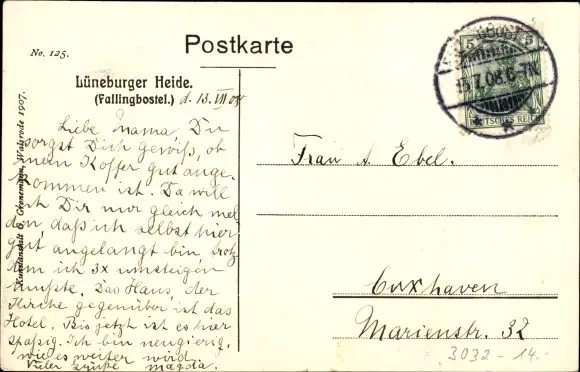 No. 125.
Postkarte
Lüneburger Heide.
(Fallingbostel.) d. 13. VII 08
Liebe Mama, Du
sorgst Dich gewiß, ob
mein Koffer gut ange-
kommen ist. Da will
ich Dir nur gleich mel-
den daß ich selbst hier
gut angelangt bin, trotz
dem ich 3x umsteigen
mußte. Das Haus, der
Kirche gegenüber ist das
Hotel. Bis jetzt ist es hier
spaßig. Ich bin neugierig,
wie es weiter wird
Viele Grüße Magda.
Kunstanstalt G. Gronemann, Walsrode 1907.
5 5
.7.08.6-7N
DEUTSCHES REICH
Frau A. Ebel.
Cuxhaven
Marienstr. 32
3032 - 14.-